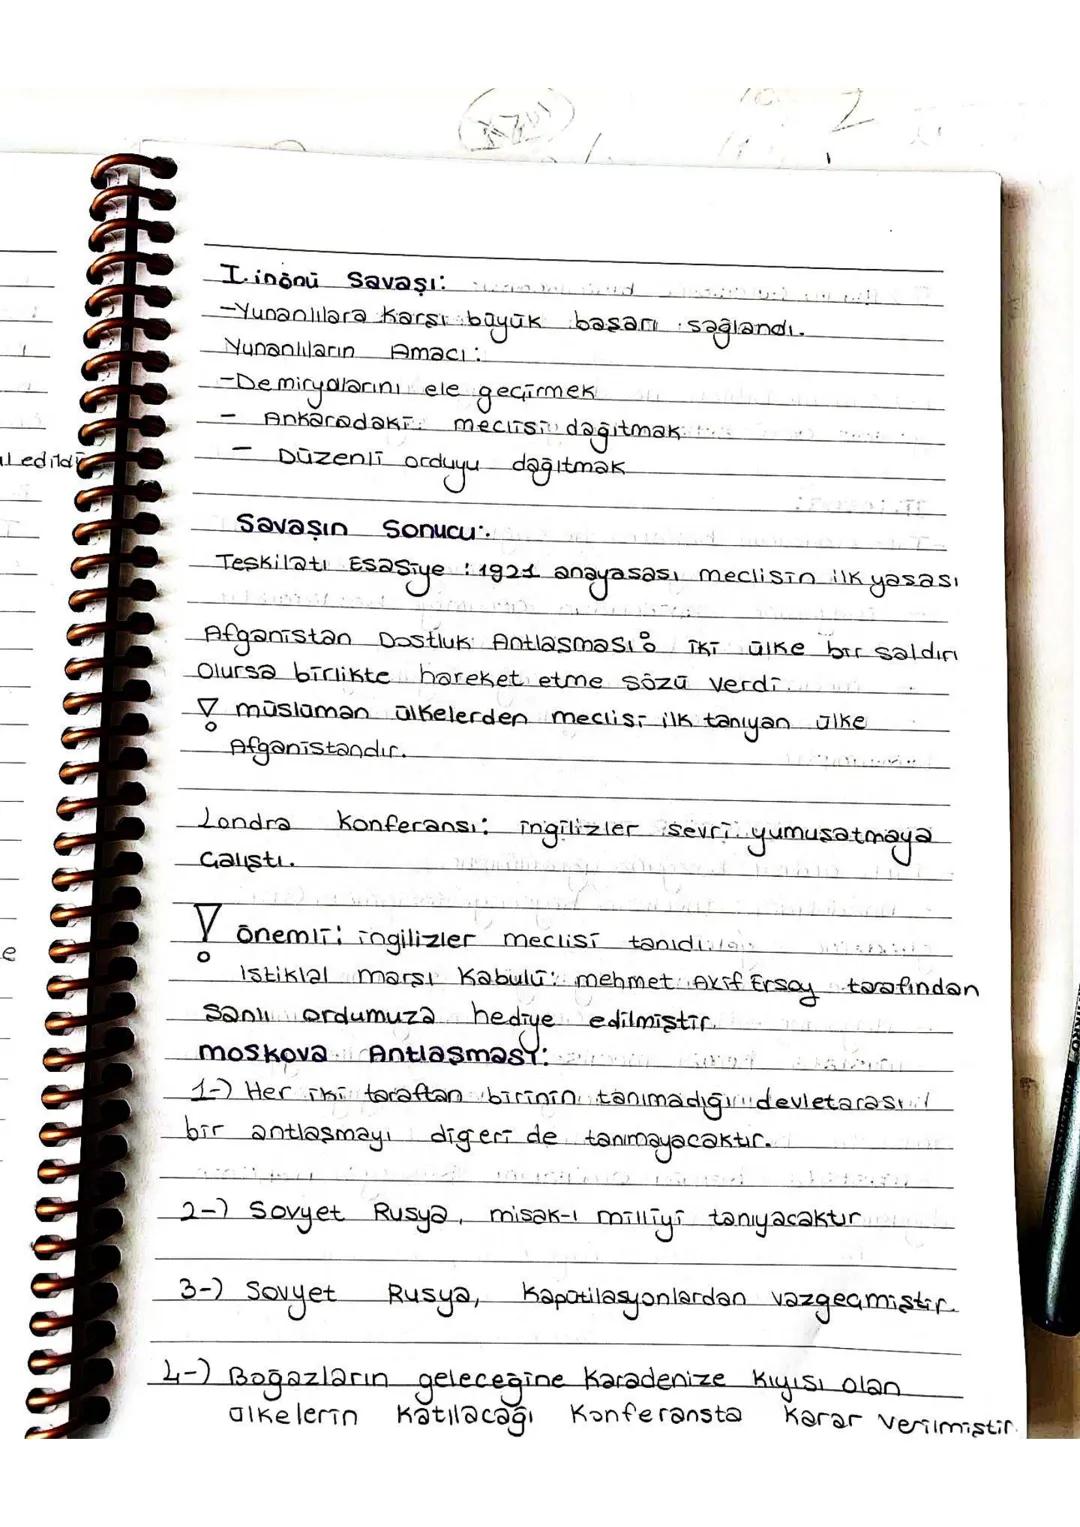 I. inönü Savaşı:
-Yunanlılara Karşı büyük başarı sağlandı.
Yunanlıların Amacı:
-Demiryolarını ele geçirmek
- Ankaradaki meclisi dağıtmak
- Düzenli orduyu dağıtmak
al edildi
Savaşın Sonucu:
Teşkilatı Esasiye : 1921 anayasası meclisin ilk yasası
Afganistan Dostluk Antlaşması: iki ülke bir saldırı
Olursa birlikte hareket etme sözü verdi.
! müslüman ülkelerden meclisi ilk tanıyan ülke
Afganistandır.
Londra Konferansı: ingilizler sevri yumuşatmaya
Çalıştı.
! önemli: ingilizler meclisi tanıdı
istiklal marşı Kabulü: mehmet Akif Ersoy tarafından
Şanlı ordumuza hediye edilmiştir.
moskova Antlaşması:
1-) Her iki taraftan birinin tanımadığı devletarası
bir antlaşmayı diğeri de tanımayacaktır.
2-) Sovyet Rusya, misak-ı milliyi tanıyacaktır
3-) Sovyet Rusya, Kapütilasyonlardan vazgeçmiştir.
4-) Boğazların geleceğine Karadenize Kıyısı olan
ülkelerin Katılacağı Konferansta Karar verilmiştir.